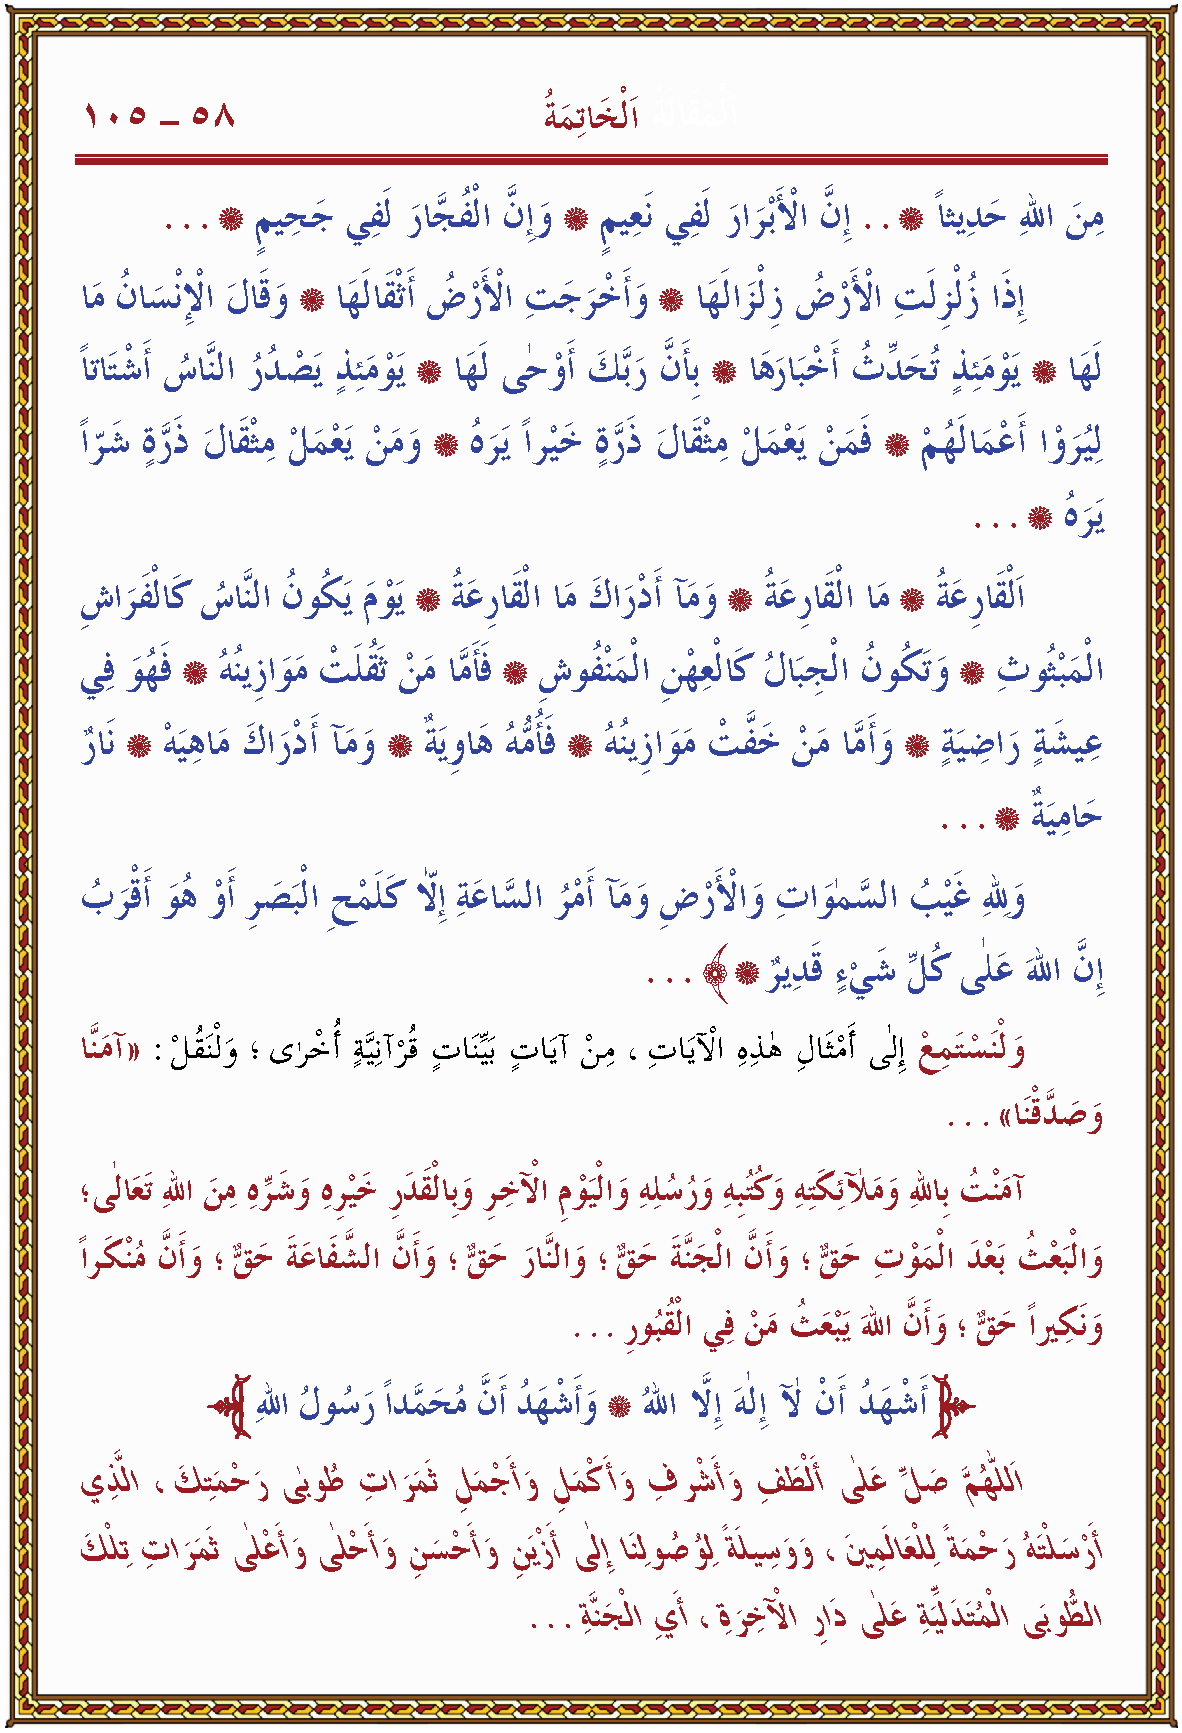 اَلْخَاتِمَةُ ٥٨ ــ ١٠٥
مِنَ اللهِ حَدِيثاً ❁ . . إِنَّ الْأَبْرَارَ لَفِي نَعِيمٍ ❁ وَإِنَّ الْفُجَّارَ لَفِي جَحِيمٍ ❁ . . .
إِذَا زُلْزِلَتِ الْأَرْضُ زِلْزَالَهَا ❁ وَأَخْرَجَتِ الْأَرْضُ أَثْقَالَهَا ❁ وَقَالَ الْإِنْسَانُ مَا
لَهَا ❁ يَوْمَئِذٍ تُحَدِّثُ أَخْبَارَهَا ❁ بِأَنَّ رَبَّكَ أَوْحٰى لَهَا ❁ يَوْمَئِذٍ يَصْدُرُ النَّاسُ أَشْتَاتاً
لِيُرَوْا أَعْمَالَهُمْ ❁ فَمَنْ يَعْمَلْ مِثْقَالَ ذَرَّةٍ خَيْراً يَرَهُ ❁ وَمَنْ يَعْمَلْ مِثْقَالَ ذَرَّةٍ شَرّاً
يَرَهُ ❁ . . .
اَلْقَارِعَةُ ❁ مَا الْقَارِعَةُ ❁ وَمَآ أَدْرَاكَ مَا الْقَارِعَةُ ❁ يَوْمَ يَكُونُ النَّاسُ كَالْفَرَاشِ
الْمَبْثُوثِ ❁ وَتَكُونُ الْجِبَالُ كَالْعِهْنِ الْمَنْفُوشِ ❁ فَأَمَّا مَنْ ثَقُلَتْ مَوَازِينُهُ ❁ فَهُوَ فِي
عِيشَةٍ رَاضِيَةٍ ❁ وَأَمَّا مَنْ خَفَّتْ مَوَازِينُهُ ❁ فَأُمُّهُ هَاوِيَةٌ ❁ وَمَآ أَدْرَاكَ مَاهِيَهْ ❁ نَارٌ
حَامِيَةٌ ❁ . . .
وَلِلهِ غَيْبُ السَّمٰوَاتِ وَالْأَرْضِ وَمَآ أَمْرُ السَّاعَةِ إِلاّٰ كَلَمْحِ الْبَصَرِ أَوْ هُوَ أَقْرَبُ
إِنَّ اللهَ عَلٰى كُلِّ شَيْءٍ قَدِيرٌ ❁ ﴾ . . .
وَلْنَسْتَمِعْ إِلٰى أَمْثَالِ هٰذِهِ الْآيَاتِ ، مِنْ آيَاتٍ بَيِّنَاتٍ قُرْآنِيَّةٍ أُخْرٰى ؛ وَلْنَقُلْ : «آمَنَّا
وَصَدَّقْنَا» . . .
آمَنْتُ بِاللهِ وَمَلٰآئِكَتِهِ وَكُتُبِهِ وَرُسُلِهِ وَالْيَوْمِ الْآخِرِ وَبِالْقَدَرِ خَيْرِهِ وَشَرِّهِ مِنَ اللهِ تَعَالٰى ؛
وَالْبَعْثُ بَعْدَ الْمَوْتِ حَقٌّ ؛ وَأَنَّ الْجَنَّةَ حَقٌّ ؛ وَالنَّارَ حَقٌّ ؛ وَأَنَّ الشَّفَاعَةَ حَقٌّ ؛ وَأَنَّ مُنْكَراً
وَنَكِيراً حَقٌّ ؛ وَأَنَّ اللهَ يَبْعَثُ مَنْ فِي الْقُبُورِ . . .
﴿ أَشْهَدُ أَنْ لٰآ إِلٰهَ إِلَّا اللهُ ❁ وَأَشْهَدُ أَنَّ مُحَمَّداً رَسُولُ اللهِ ﴾
اَللّٰهُمَّ صَلِّ عَلٰى أَلْطَفِ وَأَشْرَفِ وَأَكْمَلِ وَأَجْمَلِ ثَمَرَاتِ طُوبٰى رَحْمَتِكَ ، الَّذِي
أَرْسَلْتَهُ رَحْمَةً لِلْعَالَمِينَ ، وَوَسِيلَةً لِوُصُولِنَا إِلٰى أَزْيَنِ وَأَحْسَنِ وَأَحْلٰى وَأَعْلٰى ثَمَرَاتِ تِلْكَ
الطُّوبَى الْمُتَدَلِّيَةِ عَلٰى دَارِ الْآخِرَةِ ، أَيِ الْجَنَّةِ . . .